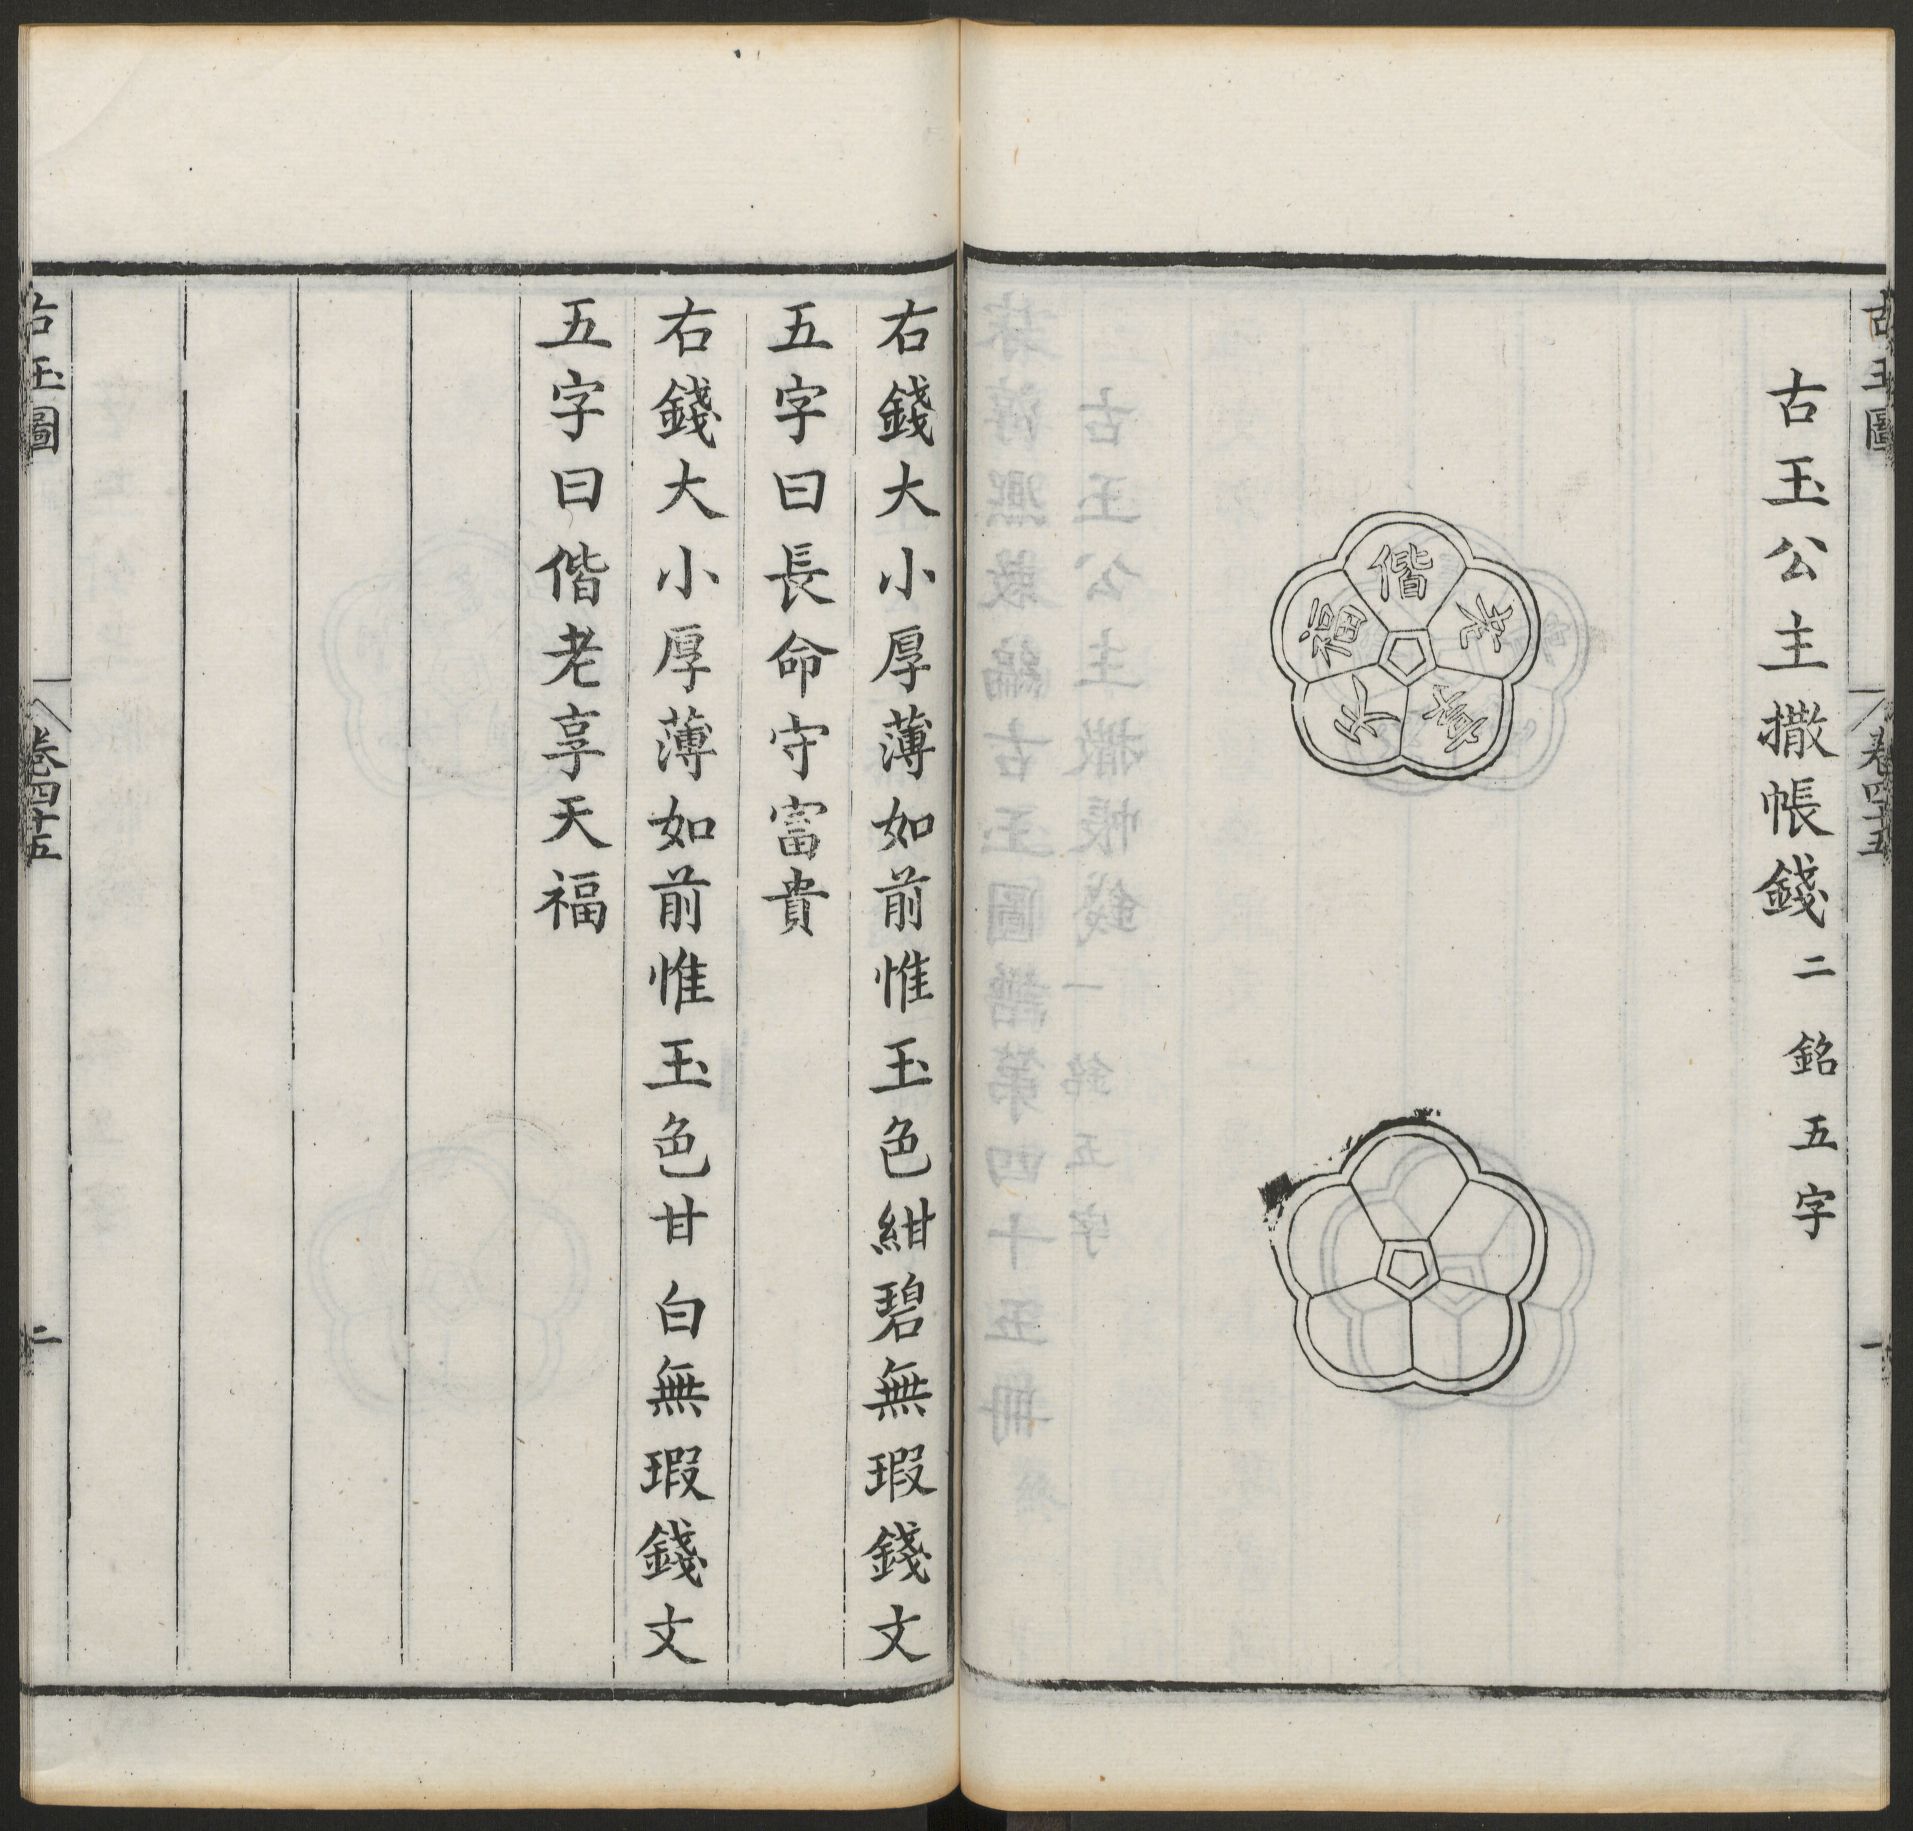 古玉圖
卷四十五
一
古玉公主撒帳錢二銘五字
偕
老
享
天
福
右錢大小厚薄如前惟玉色紺碧無瑕錢文
五字曰長命守富貴
右錢大小厚薄如前惟玉色甘白無瑕錢文
五字曰偕老享天福
古玉圖
卷四十五
二